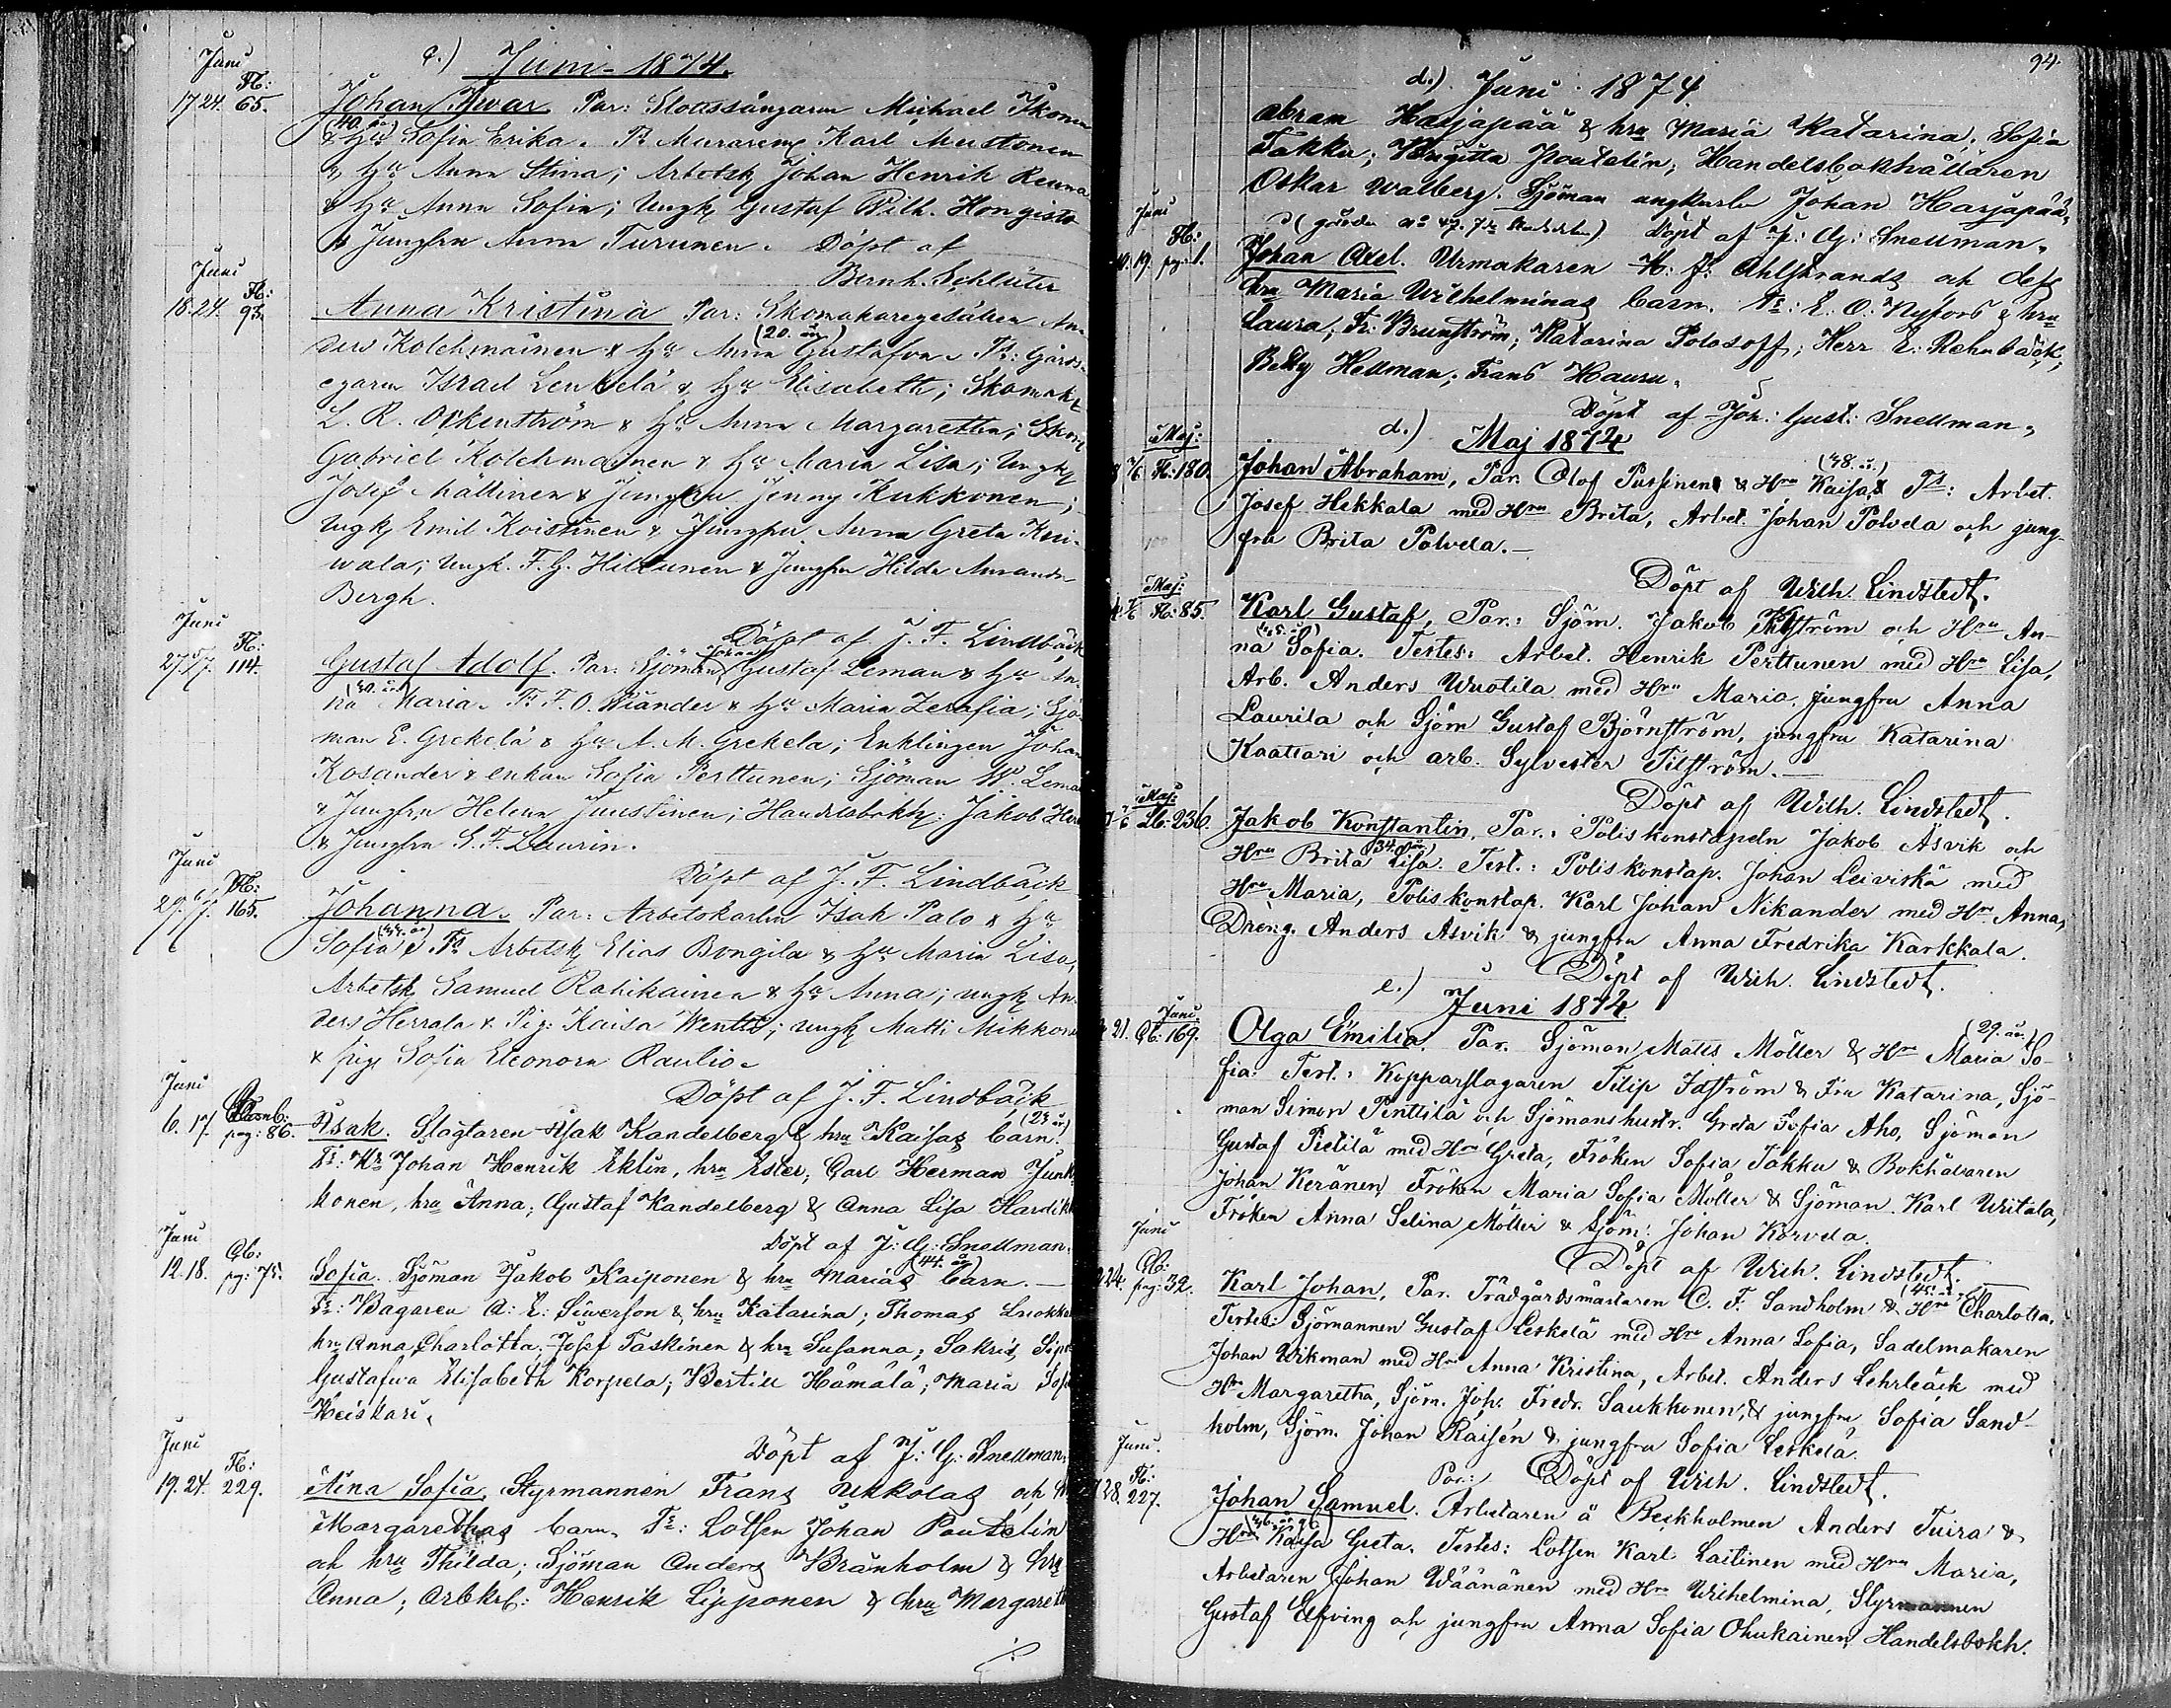 c.) Juni 1874.
Juni
Fb:
17 24. 65. Johan Iwar. Par: Michael Ikonen
(40. år)
& Hu Sofia Erika. Ts Karl Mustonen
& Hu Anna Stina; Arbetsk Johan Henrik
& Hu Anna Sofia; Ungk Gustaf Wilh. Hongisto
& Jungfru Anna Turunen. Döpt af
Bernh. Schlüter
Juni
Fb:
18. 24. 93. Anna Kristina Par: Skomakaregesällen An-
(20. år)
ders Kolehmainen & Hu Anna Gustafva. Ts: Gårds-
egaren Israel & Hu Elisabeth; Skomak
L. R. & Hu Anna Margaretha;
Gabriel Kolehmainen & Hu Maria Lisa; Ungk
Josef Mällinen & Jungfru Jenny Kukkonen;
Ungk Emil Koistinen & Jungfru Anna Greta Kui-
wala; Ungk. F. G. Hiltunen & Jungfru Hilda Amanda
Bergh.
Döpt af J. F. Lindbäck
Juni
Fb:
27. 114. Gustaf Adolf. Par: Sjöman Johan Gustaf Leman & Hu An-
(40. år)
na Maria. Ts F. O. Wiander & Hu Maria Zerafia; Sjö-
man E. Grekelä & Hu A. M. Grekela; Enklingen Johan
Kosander & enkan Sofia Perttunen; Sjöman W. Leman
& Jungfru Helena Juustinen; Handelsbokh: Jakob
& Jungfru G. F. Laurin.
Döpt af J. F. Lindbäck
Juni
Fb:
29. 165. Johanna. Par: Arbetskarlen Isak Palo & Hu
(44. år)
Sofia. Ts Arbetsk Elias Bongila & Hu Maria Lisa,
Arbetsk Samuel Rahikainen & Hu Anna; ungk An-
ders Herrala & Pig: Kaisa; ungk Matti Mikkonen
& pig Sofia Eleonora Raulio.
Döpt af J. F. Lindbäck
Juni
(23 år)
6. 17. pag: 86. Isak. Slagtaren Isak Kandelberg & hru Kaisas barn.
Ts: Johan Henrik Eklin, hru Ester, Carl Herman Junk-
konen, hru Anna; Gustaf Kandelberg & Anna Lisa
Döpt af J: G: Snellman.
Juni
Qb: (44. år)
12. 18. pg: 75. Sofia. Sjöman Jakob Kaiponen & hru Marias barn. —
Ts: Bagaren A: E: Siwerson & hru Katarina; Thomas
hru Anna Charlotta; Josef Taskinen & hru Susanna; Sakris
Gustafva Elisabeth Korpela; Bertill Hämälä; Maria
Heiskari.
Döpt af J: G: Snellman.
Juni
Fb:
19. 24. 229. Aina Sofia. Styrmannen Frans Ukkolas och
Margarethas barn. Ts: Lotsen Johan Poutelin
och hru Thilda; Sjöman Anders Bränholm & hru
Anna; Arbkrl: Henrik Lipponen & hru Margareth
94.
d.) Juni 1874.
Abram Harjapää & hru Maria Katarina; Sofia
Takku; Brigitta Poutelin; Handelsbokhållaren
Oskar Walberg. Sjöman ungkarln Johan Harjapää.
Döpt af J: G: Snellman.
Juni
Fb:
10. 19. pg: 1. Johan Axel. Urmakaren K: F: Ahlstrands och dess
hru Maria Wilhelminas barn. Ts: E. O. Nyfors & hru
Laura; Fr: Brunström; Katarina Polosoff; Herr E: Rehnbäck;
Betty Hellman; Frans Hauru.
Döpt af Joh: Gust: Snellman.
d.) Maj 1874
Maj: (48. år.)
Fb: 180. Johan Abraham, Par. Olof Pussinen & Hru Kaisa. Ts: Arbet.
Josef Hekkala med Hru Brita, Arbet. Johan Polvela och jung-
fru Brita Polvela.—
Döpt af Wilh. Lindstedt.
Maj:
Fb: 85. Karl Gustaf, Par.: Sjöm. Jakob och Hru An-
(45. år)
na Sofia. Testes: Arbet. Henrik Perttunen med Hru Lisa,
Arb. Anders Wuotila med Hru Maria, jungfru Anna
Laurila och Sjöm Gustaf Björnström, jungfru Katarina
Kaattari och arb. Sylvester Tilström.—
Döpt af Wilh. Lindstedt.
Maj:
Lb: 236. Jakob Konstantin, Par.: Poliskonstapeln Jakob Åsvik och
(34. år)
Hru Brita Lisa. Test.: Poliskonstap. Johan Leiviskä med
Hru Maria, Poliskonstap. Karl Johan Nikander med Hru Anna,
Dreng. Anders Asvik & jungfru Anna Fredrika Karkkala.
Döpt af Wilh. Lindstedt.
e.) Juni 1874
Juni (29. år.)
21. Qb: 169. Olga Emilia. Par. Sjöman Matts Möller & Hru Maria So-
fia: Test.: Kopparslagaren Filip Idström & Fru Katarina, Sjö-
man Simon Penttilä och Sjömanshustr. Greta Sofia Aho, Sjöman
Gustaf Pietilä med Hru Greta, Fröken Sofia Takku & Bokhållaren
Johan Keränen, Fröken Maria Sofia Möller & Sjöman Karl Uritala,
Fröken Anna Selina Möller & Sjöm: Johan Korvela.
Döpt af Wilh. Lindstedt.
Juni
Qb: (45. år)
24. pag: 32. Karl Johan, Par. Trädgårdsmästaren C. F. Sandholm & Hru Charlotta.
Testes: Sjömannen Gustaf Leskelä med Hru Anna Sofia, Sadelmakaren
Johan Wikman med Hru Anna Kristina, Arbet. Anders Lehrbäck med
Hru Margaretha, Sjöm. Joh. Fredr. Saukkonen, & jungfru Sofia Sand-
holm, Sjöm. Johan Raisén & jungfru Sofia Leskelä.
Döpt af Wilh. Lindstedt.
Juni.
Fb: Par:
28. 227. Johan Samuel. Arbetaren å Beckholmen Anders Tuira &
(46. år)
Hru Kaisa Greta. Testes: Lotsen Karl Laitinen med Hru Maria,
Arbetaren Johan Wäänänen med Hru Wilhelmina, Styrmannen
Gustaf Elfving och jungfru Anna Sofia Ohukainen, Handelsbokh.